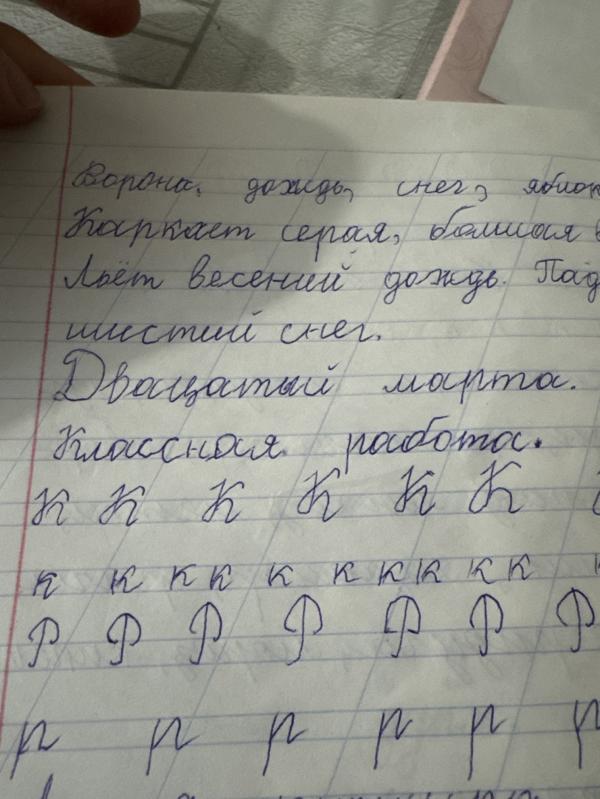 Ворона, дождь, снег, яблок
Каркает серая, большая в
Льёт весений дождь. Пад
шистий снег.
Двацатый марта.
Классная работа.
К К К К К К
к к к к к к к к к к
Р Р Р Р Р Р Р
р р р р р р